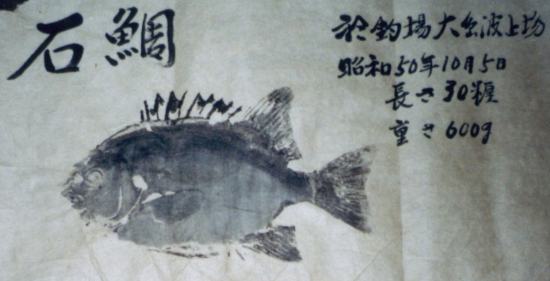 石鯛
於釣場大糸波止場
昭和50年10月5日
長さ30糎
重さ600g